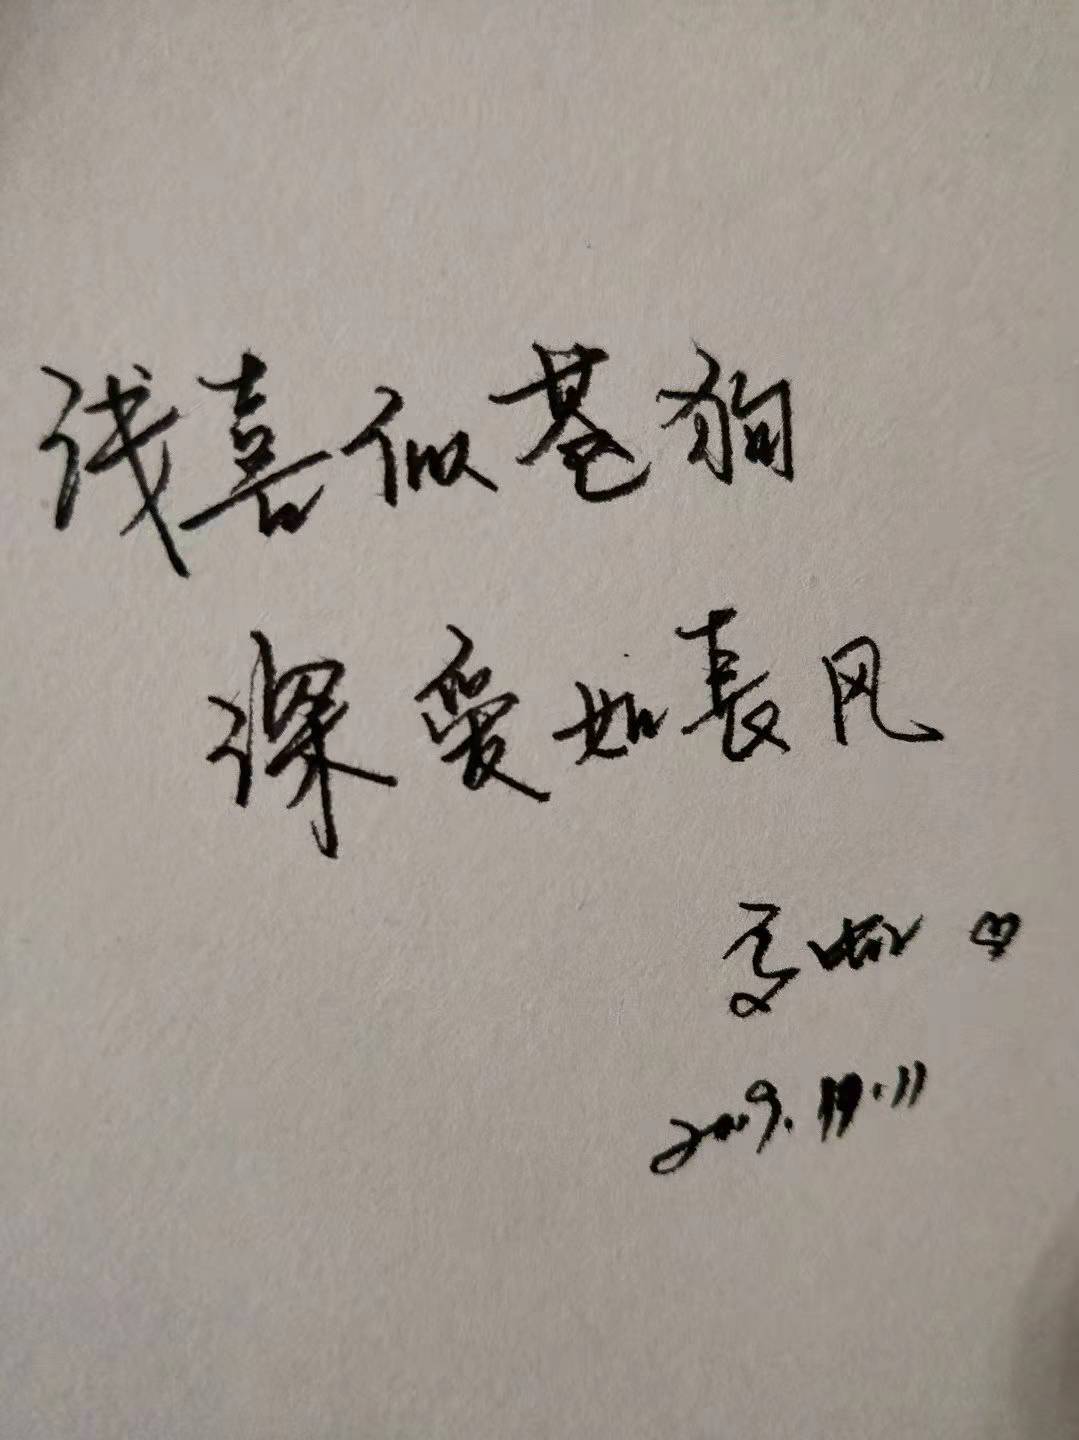 浅喜似苍狗
深爱如長风
2019.11.11